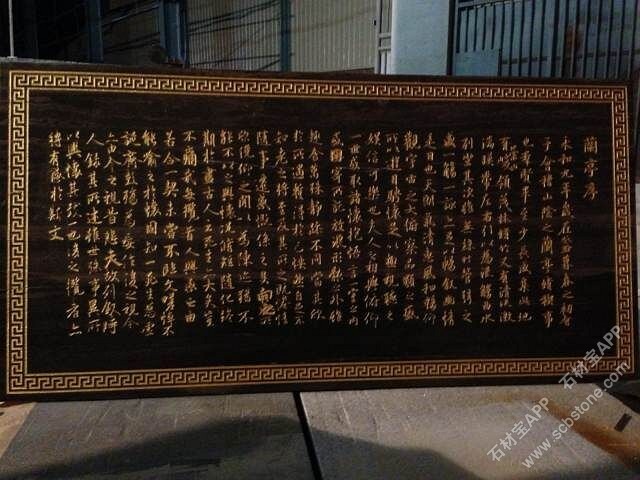 蘭亭序
永和九年歲在癸丑暮春之初會
于會稽山陰之蘭亭脩稧事
也群賢畢至少長咸集此地
有崇山峻領茂林脩竹又有清流激
湍暎帶左右引以為流觴曲水
列坐其次雖無絲竹管弦之
盛一觴一詠亦足以暢敘幽情
是日也天朗氣清惠風和暢仰
觀宇宙之大俯察品類之盛
所以遊目騁懷足以極視聽之
娛信可樂也夫人之相與俯仰
一世或取諸懷抱悟言一室之內
或因寄所託放浪形骸之外雖
趣舍萬殊靜躁不同當其欣
於所遇暫得於己怏然自足不
知老之將至及其所之既惓情
隨事遷感慨係之矣向之所
欣俛仰之間以為陳迹猶不
能不以之興懷況脩短隨化終
期於盡古人云死生亦大矣豈
不痛哉每攬昔人興感之由
若合一契未嘗不臨文嗟悼不
能喻之於懷固知一死生為虛
誕齊彭殤為妄作後之視今
亦由今之視昔悲夫故列敘時
人錄其所述雖世殊事異所
以興懷其致一也後之攬者亦
將有感於斯文
石材宝APP 石材宝APP
www.scbstone.com